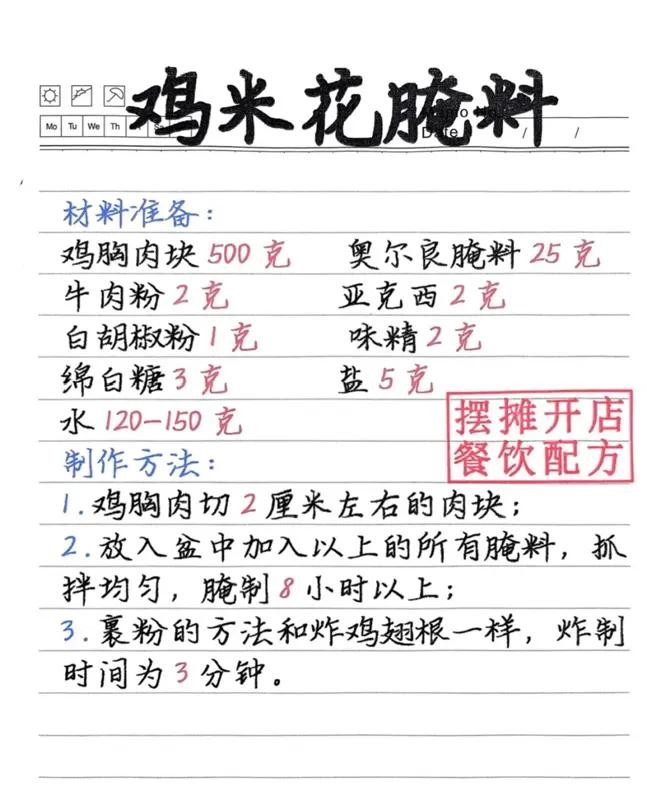 鸡米花腌料
Mo Tu We Th
Date / /
材料准备：
鸡胸肉块 500 克 奥尔良腌料 25 克
牛肉粉 2 克 亚克西 2 克
白胡椒粉 1 克 味精 2 克
绵白糖 3 克 盐 5 克
水 120-150 克
摆摊开店
餐饮配方
制作方法：
1. 鸡胸肉切 2 厘米左右的肉块；
2. 放入盆中加入以上的所有腌料，抓
拌均匀，腌制 8 小时以上；
3. 裹粉的方法和炸鸡翅根一样，炸制
时间为 3 分钟。